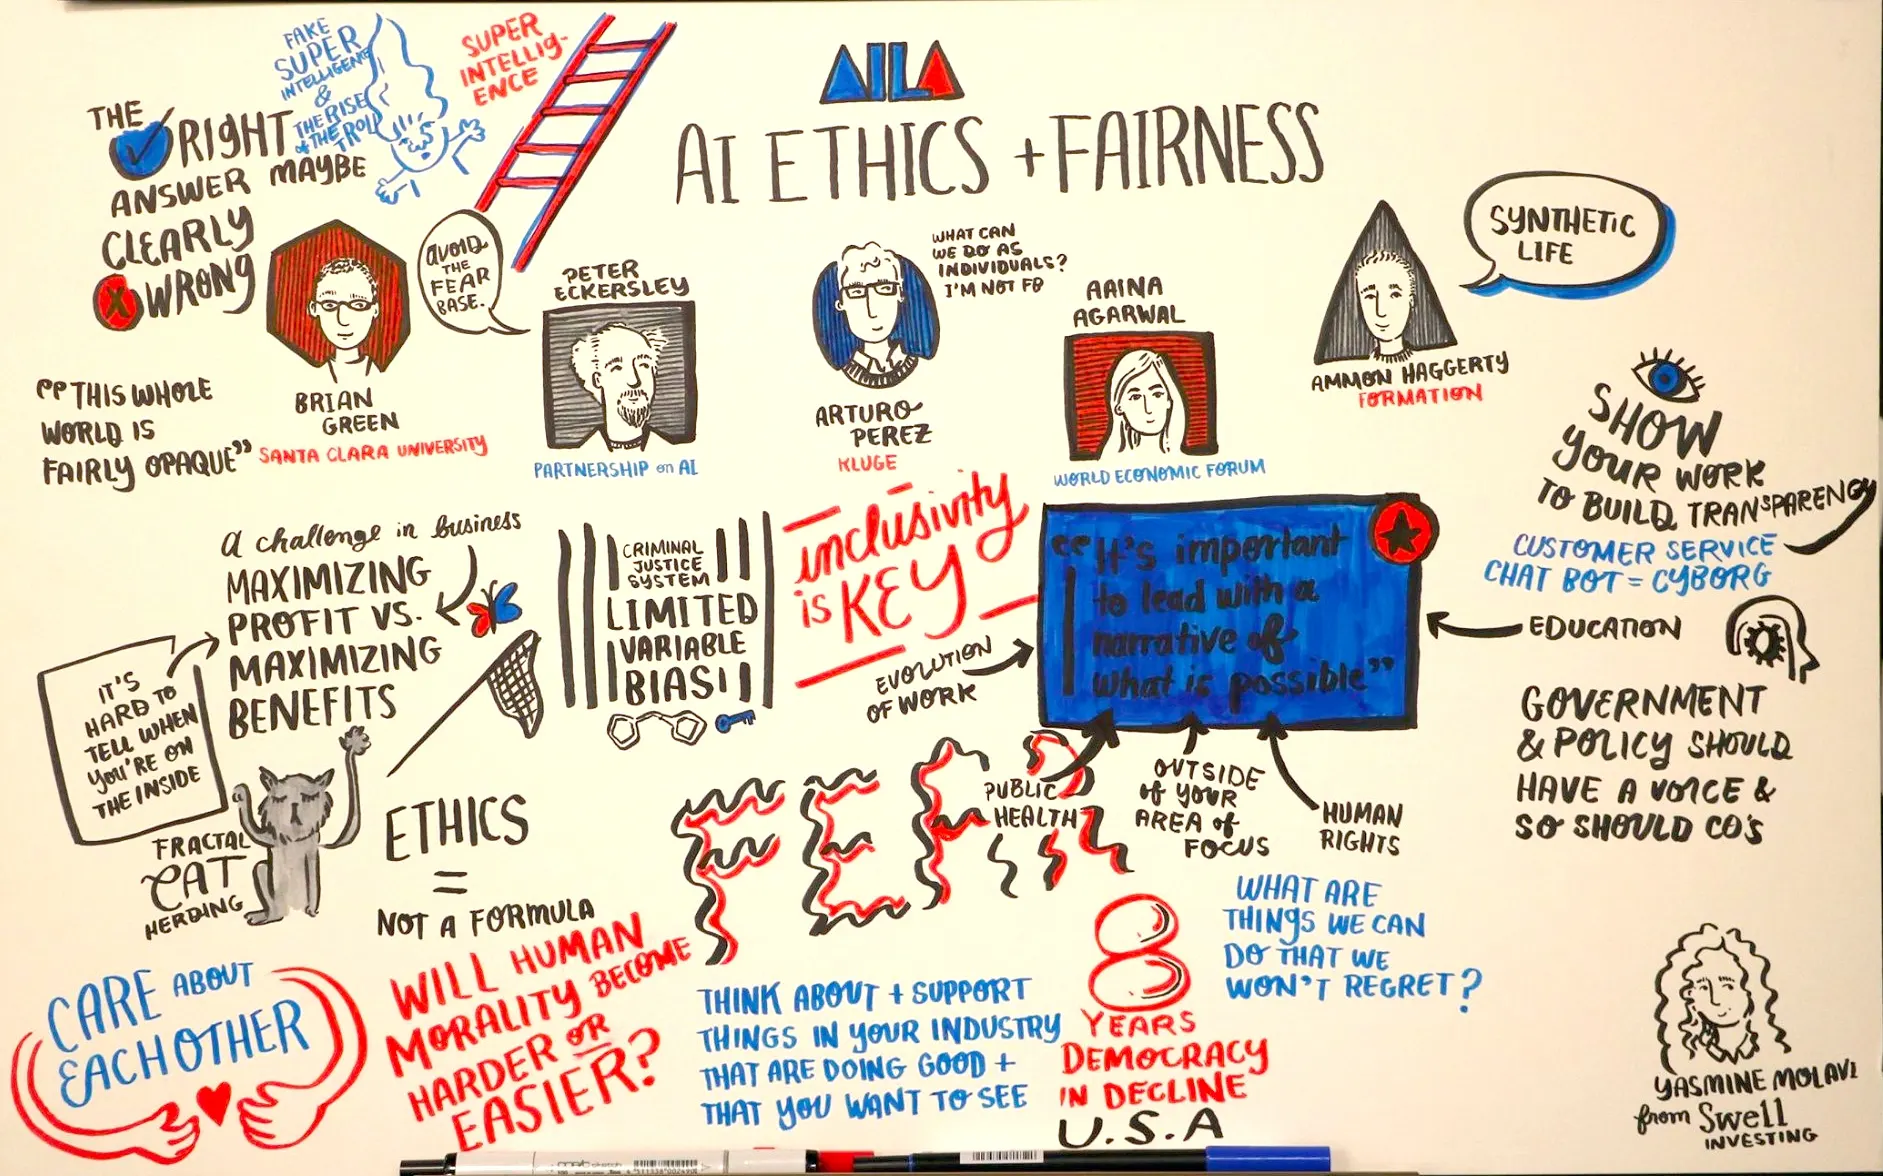 AILA
AI ETHICS + FAIRNESS
THE
RIGHT
ANSWER MAYBE
CLEARLY
WRONG
FAKE
SUPER
INTELLIGENCE
&
THE RISE
of THE ROLL
TROLL
SUPER
INTELLIG-
ENCE
AVOID
THE
FEAR
BASE.
BRIAN
GREEN
SANTA CLARA UNIVERSITY
PETER
ECKERSLEY
PARTNERSHIP on AI
WHAT CAN
WE DO AS
INDIVIDUALS?
I'M NOT FB
ARTURO
PEREZ
KLUGE
AAINA
AGARWAL
WORLD ECONOMIC FORUM
SYNTHETIC
LIFE
AMMON HAGGERTY
FORMATION
"THIS WHOLE
WORLD IS
FAIRLY OPAQUE"
SHOW
YOUR WORK
TO BUILD TRANSPARENCY
CUSTOMER SERVICE
CHAT BOT = CYBORG
A challenge in business
MAXIMIZING
PROFIT VS.
MAXIMIZING
BENEFITS
IT'S
HARD TO
TELL WHEN
YOU'RE ON
THE INSIDE
FRACTAL
CAT
HERDING
CRIMINAL
JUSTICE
SYSTEM
LIMITED
VARIABLE
BIAS
inclusivity
is KEY
EVOLUTION
OF WORK
"It's important
to lead with a
narrative of
what is possible"
EDUCATION
GOVERNMENT
& POLICY SHOULD
HAVE A VOICE &
SO SHOULD CO'S
PUBLIC
HEALTH
OUTSIDE
of YOUR
AREA of
FOCUS
HUMAN
RIGHTS
ETHICS
=
NOT A FORMULA
FEAR
CARE ABOUT
EACH OTHER
WILL HUMAN
MORALITY BECOME
HARDER OR
EASIER?
THINK ABOUT + SUPPORT
THINGS IN YOUR INDUSTRY
THAT ARE DOING GOOD +
THAT YOU WANT TO SEE
8
YEARS
DEMOCRACY
IN DECLINE
U.S.A
WHAT ARE
THINGS WE CAN
DO THAT WE
WON'T REGRET?
YASMINE MOLAVI
from Swell
INVESTING